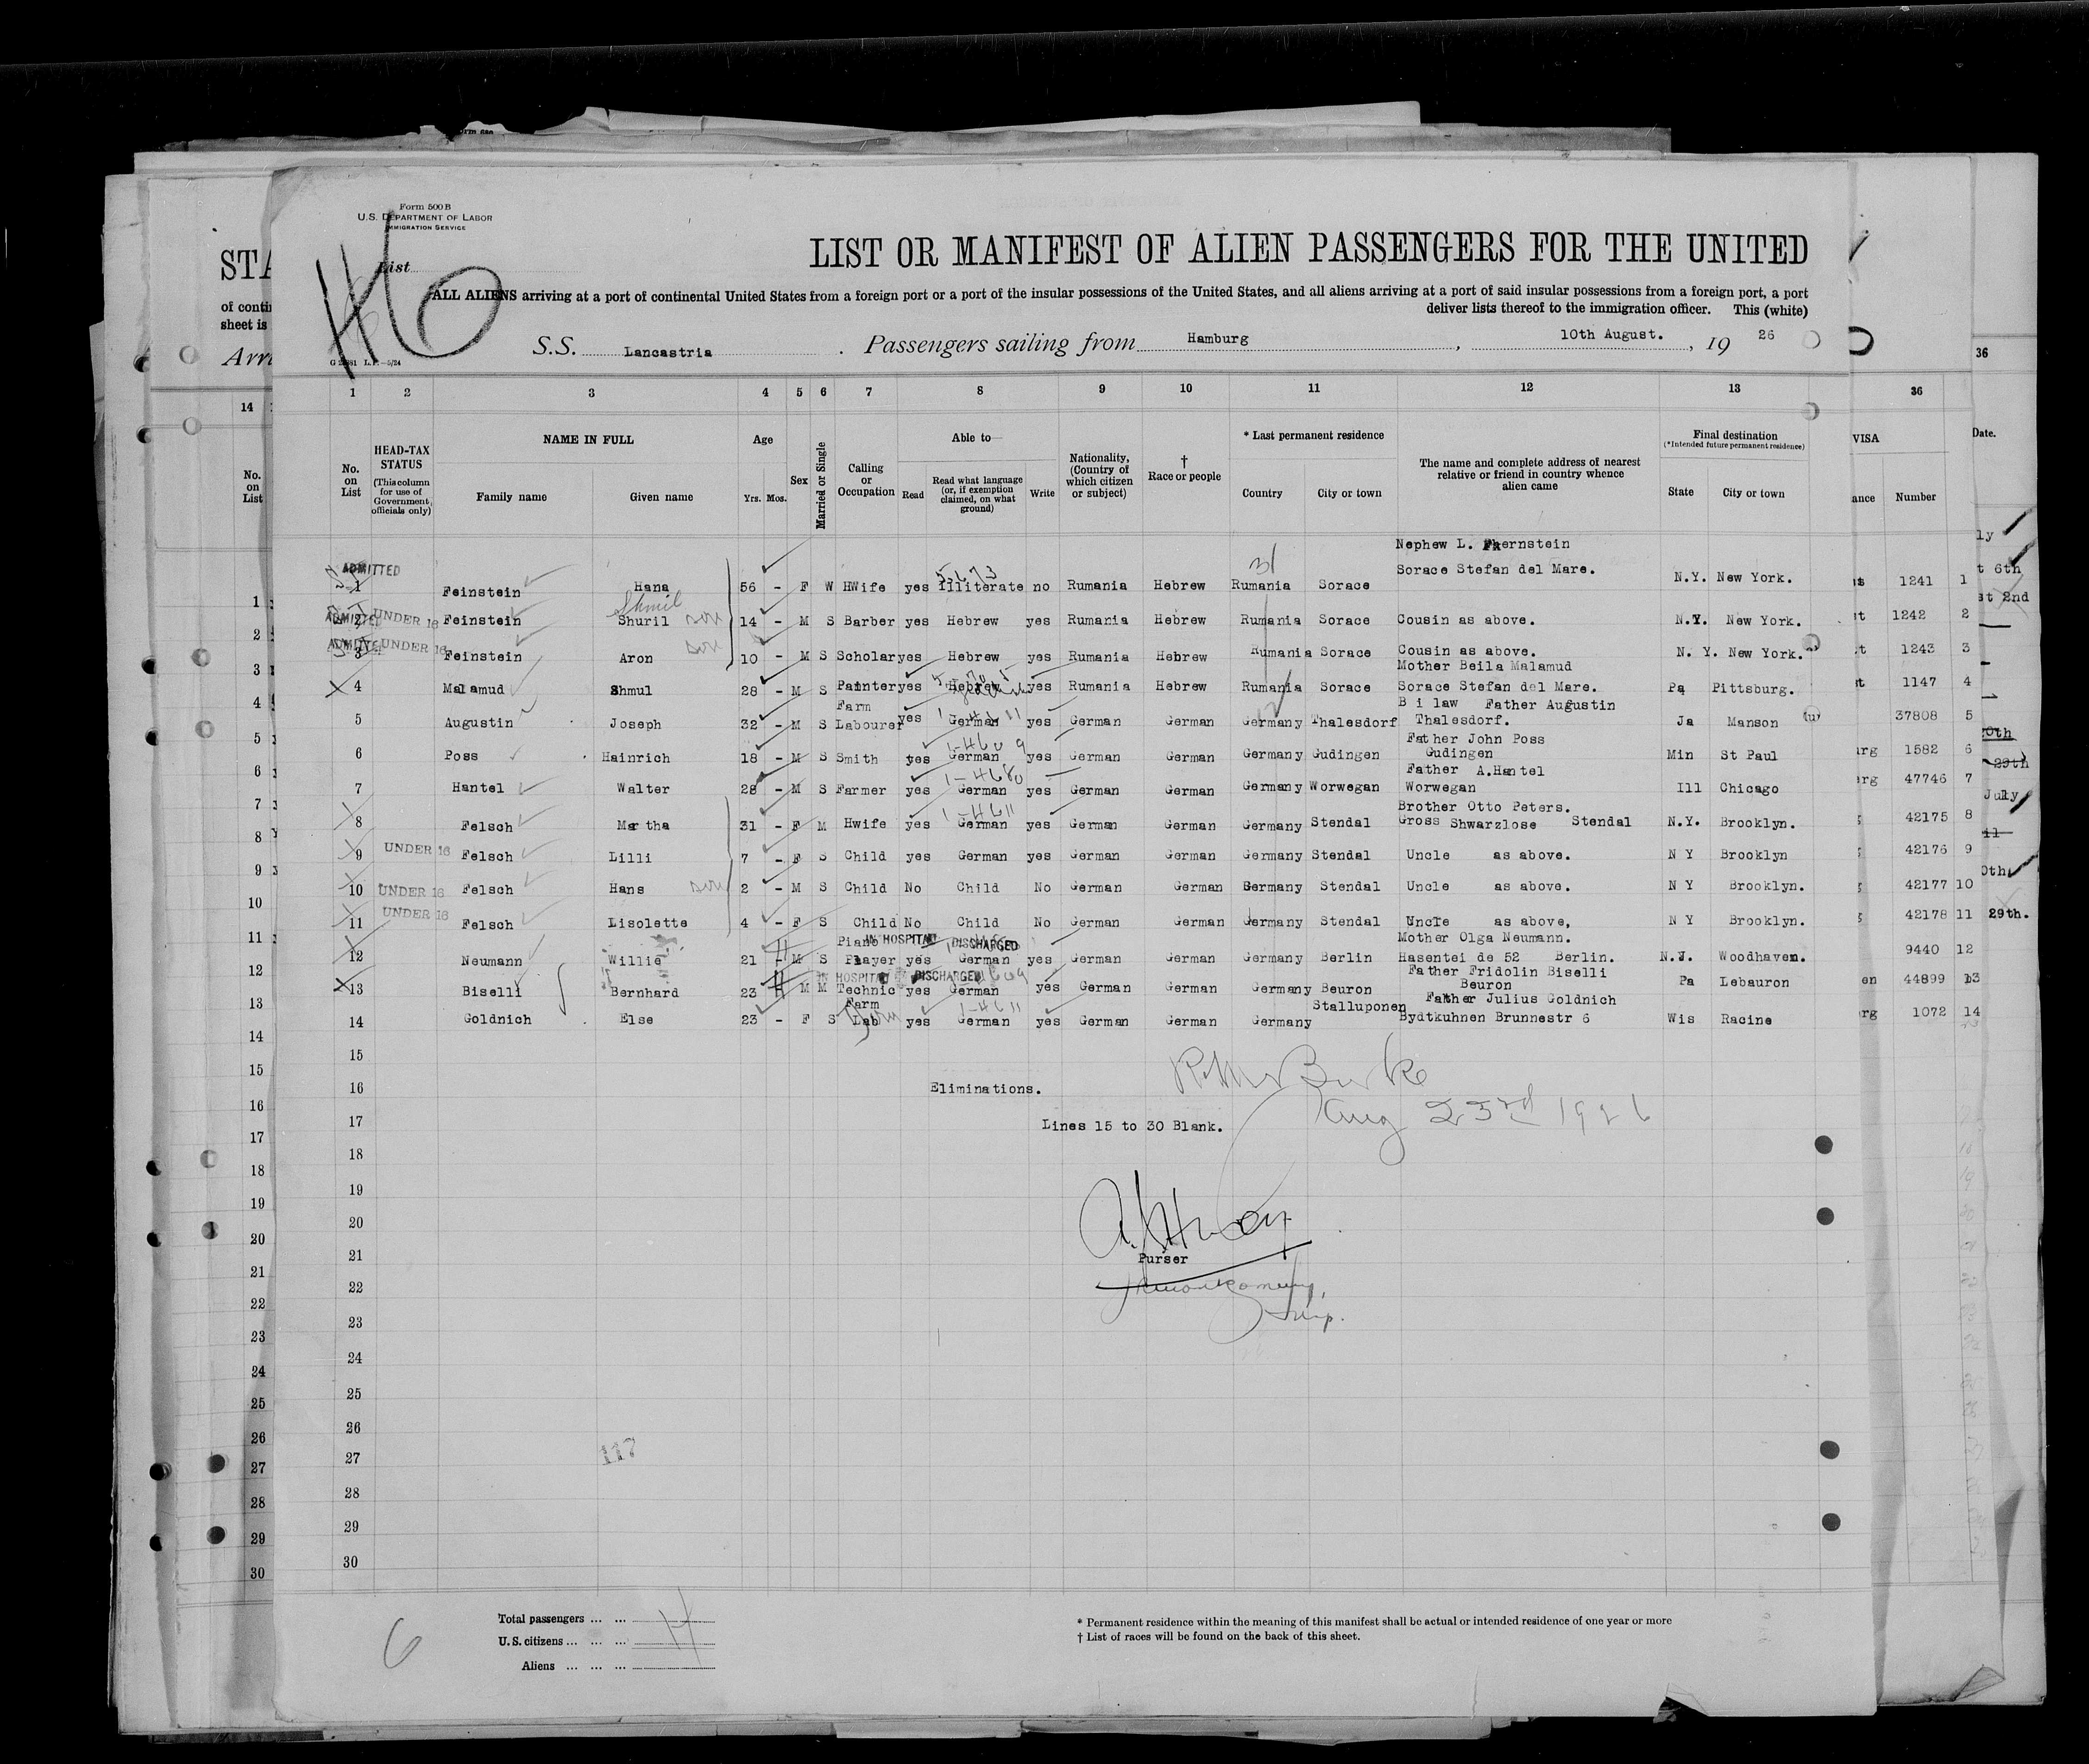 Form 500B
U.S. DEPARTMENT OF LABOR
IMMIGRATION SERVICE
List
LIST OR MANIFEST OF ALIEN PASSENGERS FOR THE UNITED
ALL ALIENS arriving at a port of continental United States from a foreign port or a port of the insular possessions of the United States, and all aliens arriving at a port of said insular possessions from a foreign port, a port
deliver lists thereof to the immigration officer. This (white)
S.S. Lancastria. Passengers sailing from Hamburg, 10th August., 19 26
1 2 3 4 5 6 7 8 9 10 11 12 13 36
No. on List
HEAD-TAX STATUS (This column for use of Government officials only)
NAME IN FULL
Family name Given name
Age
Yrs. Mos.
Sex
Married or Single
Calling or Occupation
Able to
Read
Read what language (or, if exemption claimed, on what ground)
Write
Nationality, (Country of which citizen or subject)
† Race or people
* Last permanent residence
Country City or town
The name and complete address of nearest relative or friend in country whence alien came
Final destination
(*Intended future permanent residence)
State City or town
VISA
Number
Date.
Nephew L.
ADMITTED Sorace Stefan del Mare.
1 Feinstein Hana 56 - F W HWife yes Illiterate no Rumania Hebrew Rumania Sorace N.Y. New York. 1241 1
Shmil
2 UNDER 16 Feinstein Shuril son 14 - M S Barber yes Hebrew yes Rumania Hebrew Rumania Sorace Cousin as above. N.Y. New York. 1242 2
3 UNDER 16 Feinstein Aron son 10 - M S Scholar yes Hebrew yes Rumania Hebrew Rumania Sorace Cousin as above. N. Y. New York. 1243 3
Mother Beila Malamud
4 Malamud Shmul 28 - M S Painter yes Hebrew yes Rumania Hebrew Rumania Sorace Sorace Stefan del Mare. Pa Pittsburg. 1147 4
Farm B i law Father Augustin
5 Augustin Joseph 32 - M S Labourer yes German yes German German Germany Thalesdorf Thalesdorf. Ja Manson 37808 5
1-4609 Father John Poss
6 Poss Hainrich 18 - M S Smith yes German yes German German Germany Gudingen Gudingen Min St Paul 1582 6
1-4680 Father A.Hantel
7 Hantel Walter 28 - M S Farmer yes German yes German German Germany Worwegan Worwegan Ill Chicago 47746 7
1-4611 Brother Otto Peters.
8 Felsch Martha 31 - F M Hwife yes German yes German German Germany Stendal Gross Shwarzlose Stendal N.Y. Brooklyn. 42175 8
9 UNDER 16 Felsch Lilli 7 - F S Child yes German yes German German Germany Stendal Uncle as above. N Y Brooklyn 42176 9
10 UNDER 16 Felsch Hans son 2 - M S Child No Child No German German Germany Stendal Uncle as above. N Y Brooklyn. 42177 10
11 UNDER 16 Felsch Lisolette 4 - F S Child No Child No German German Germany Stendal Uncle as above, N Y Brooklyn. 42178 11 29th.
Piano IN HOSPITAL DISCHARGED Mother Olga Neumann.
12 Neumann Willie 21 - M S Player yes German yes German German Germany Berlin Hasentei de 52 Berlin. N.J. Woodhaven. 9440 12
IN HOSPITAL DISCHARGED Father Fridolin Biselli
13 Biselli Bernhard 23 M M Technic yes German yes German German Germany Beuron Beuron Pa Lebauron 44899 13
Farm 1-4611 Stalluponen Father Julius Goldnich
14 Goldnich Else 23 - F S Lab yes German yes German German Germany Bydtkuhnen Brunnestr 6 Wis Racine 1072 14
15
16 Eliminations.
Aug 23rd 1926
17 Lines 15 to 30 Blank.
18
19
20
21 Purser
22
23
24
25
26
27 117
28
29
30
6
Total passengers ... ... 14
U.S. citizens ... ... ...
Aliens ... ... ...
* Permanent residence within the meaning of this manifest shall be actual or intended residence of one year or more
† List of races will be found on the back of this sheet.